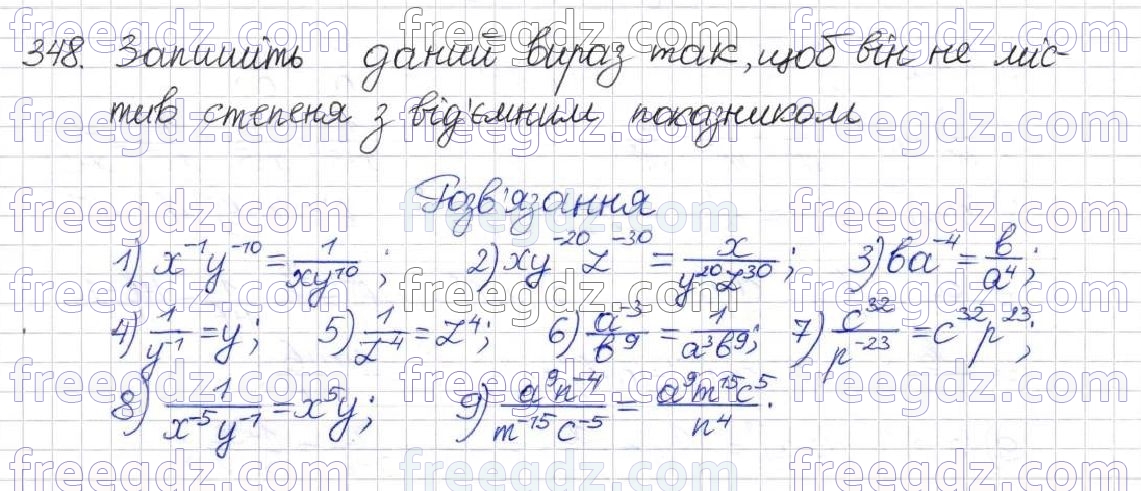 348. Запишіть даний вираз так, щоб він не міс-
тив степеня з від'ємним показником
Розв'язання
1) x⁻¹y⁻¹⁰ = 1/(xy¹⁰); 2) xy⁻²⁰z⁻³⁰ = x/(y²⁰z³⁰); 3) ba⁻⁴ = b/a⁴;
4) 1/y⁻¹ = y; 5) 1/z⁻⁴ = z⁴; 6) a⁻³/b⁹ = 1/(a³b⁹); 7) c³²/p⁻²³ = c³²p²³;
8) 1/(x⁻⁵y⁻¹) = x⁵y; 9) (a⁹n⁻⁴)/(m⁻¹⁵c⁻⁵) = (a⁹m¹⁵c⁵)/n⁴.
freegdz.com